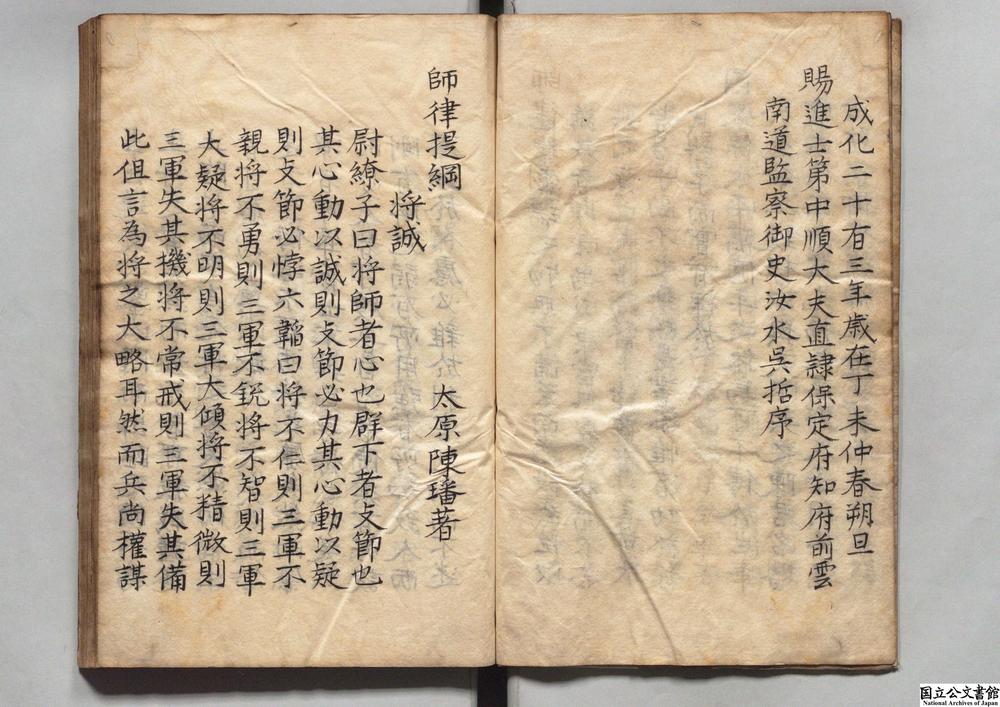 成化二十有三年歳在丁未仲春朔旦
賜進士第中順大夫直隷保定府知府前雲
南道監察御史汝水吳哲序
師律提綱
太原陳璠著
将誠
尉繚子曰将師者心也群下者攴節也
其心動以誠則攴節必力其心動以疑
則攴節必悖六韜曰将不仁則三軍不
親将不勇則三軍不銳将不智則三軍
大疑将不明則三軍大傾将不精微則
三軍失其機将不常戒則三軍失其備
此但言為将之大略耳然而兵尚權謀
国立公文書館
National Archives of Japan